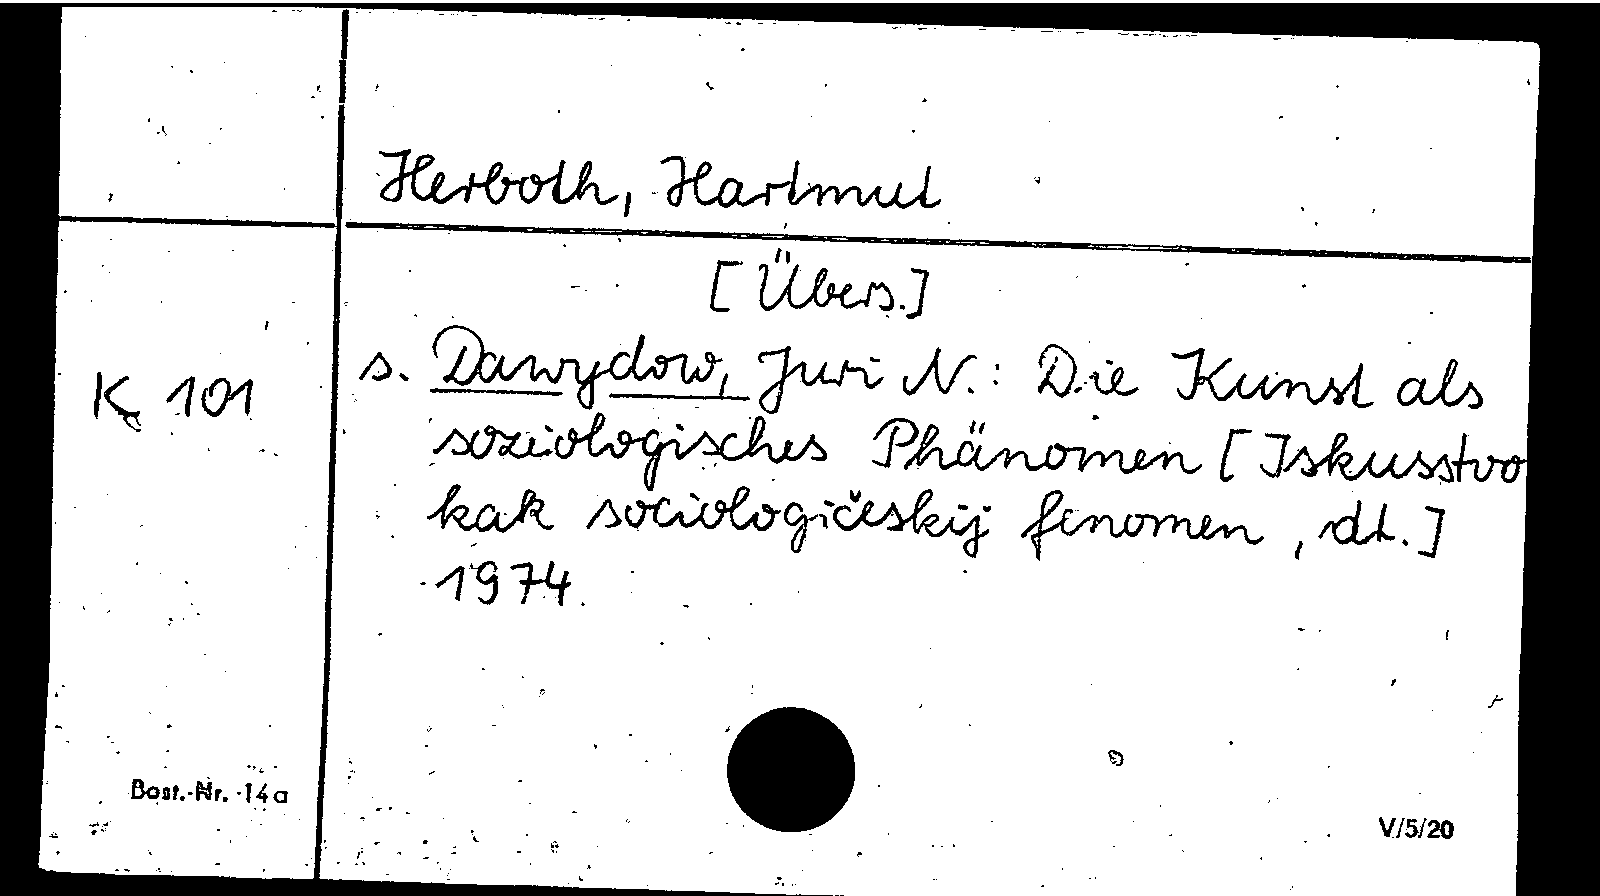 Herboth, Hartmut
[Übers.]
K 101
s. Dawydow, Juri N.: Die Kunst als
soziologisches Phänomen [Iskusstvo
kak sociologičeskij fenomen, dt.]
1974.
Best.-Nr. 14a
V/5/20